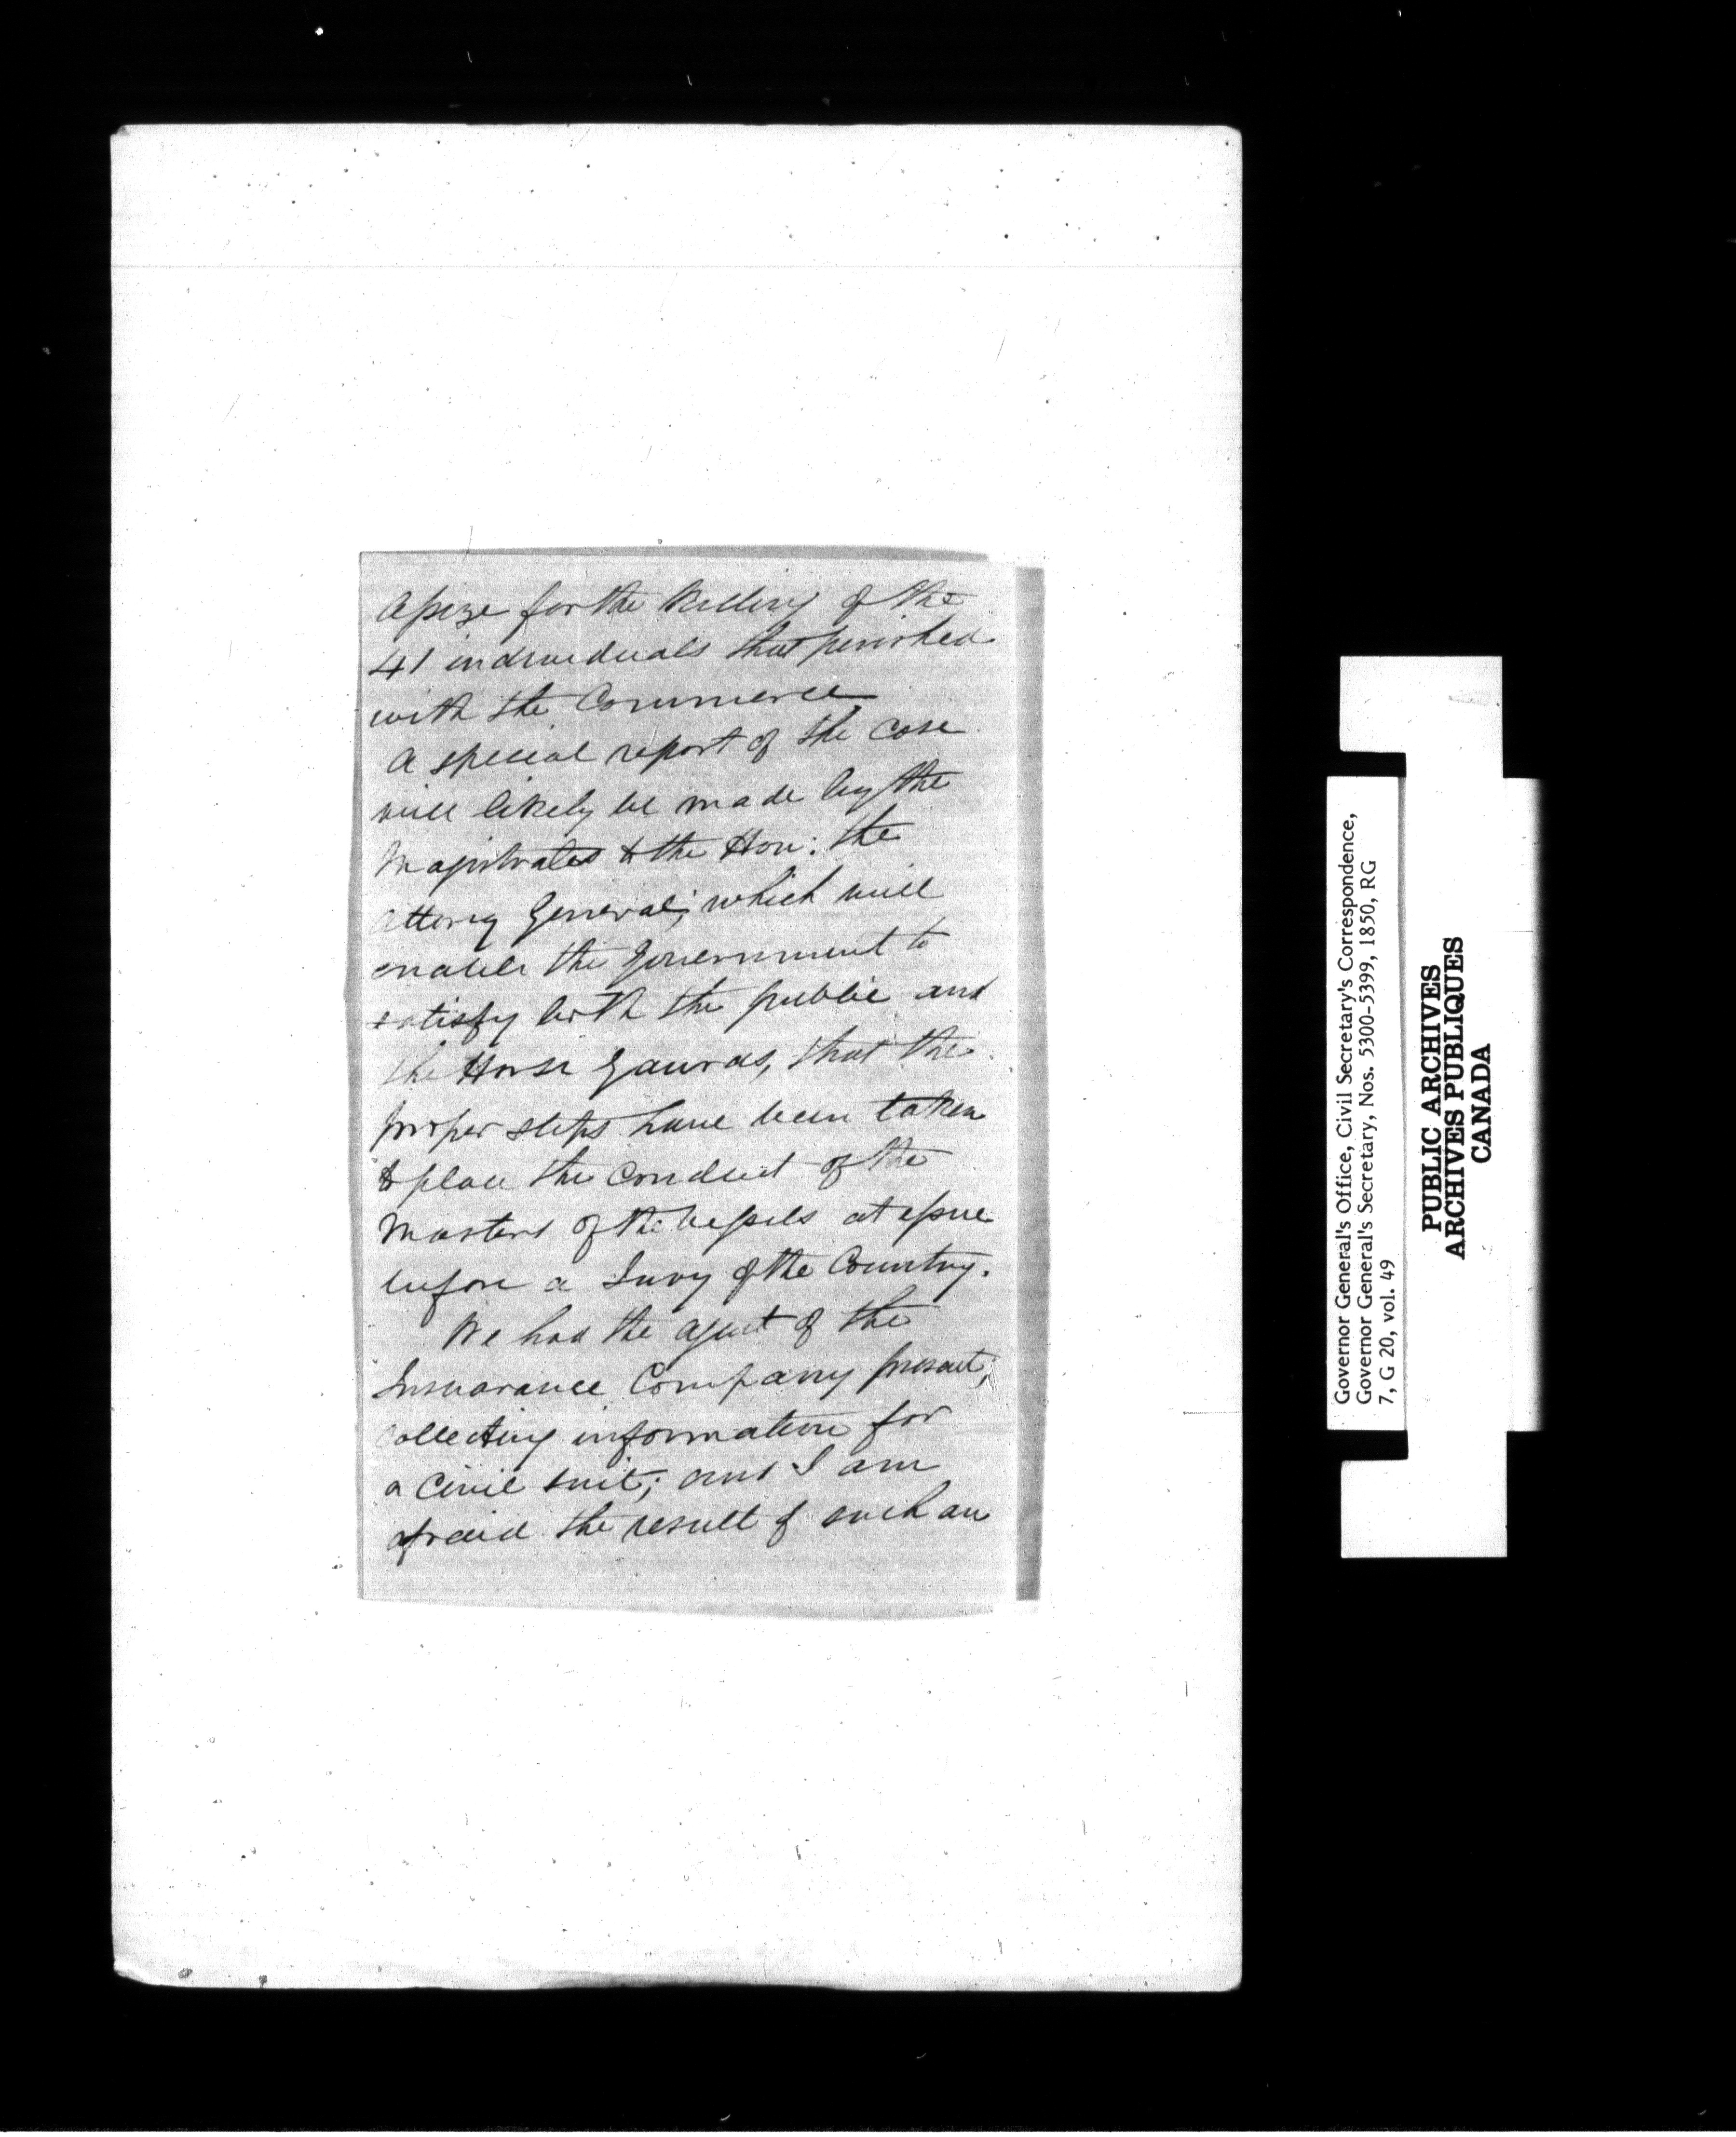 Assize for the killing of the
41 individuals that perished
with the Commerce
A special report of the case
will likely be made by the
Magistrates to the Hon: the
Attorny General; which will
enable the Government to
satisfy both the public and
the Horse Gaurds, that the
proper steps have been taken
to place the conduct of the
Masters of the vessels at issue
before a Jury of the Country.
We had the agent of the
Insurance Company present,
collecting information for
a Civil suit; and I am
afraid the result of such an
Governor General's Office, Civil Secretary's Correspondence,
Governor General's Secretary, Nos. 5300-5399, 1850, RG
7, G 20, vol. 49
PUBLIC ARCHIVES
ARCHIVES PUBLIQUES
CANADA